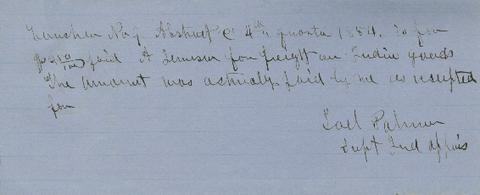 Voucher No 9 Abstract C 4th quarter 1854. is for
paid A for freight on Indian goods
The amount was actually paid by me as receipted
for
Joel Palmer
Supt Ind affairs